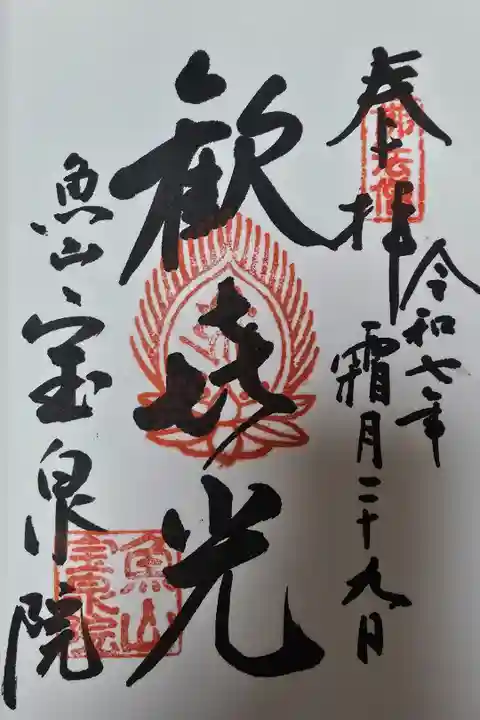 奉拝
令和七年
霜月二十九日
歓㐂光
魚山 宝泉院
佛法僧
魚山宝泉院